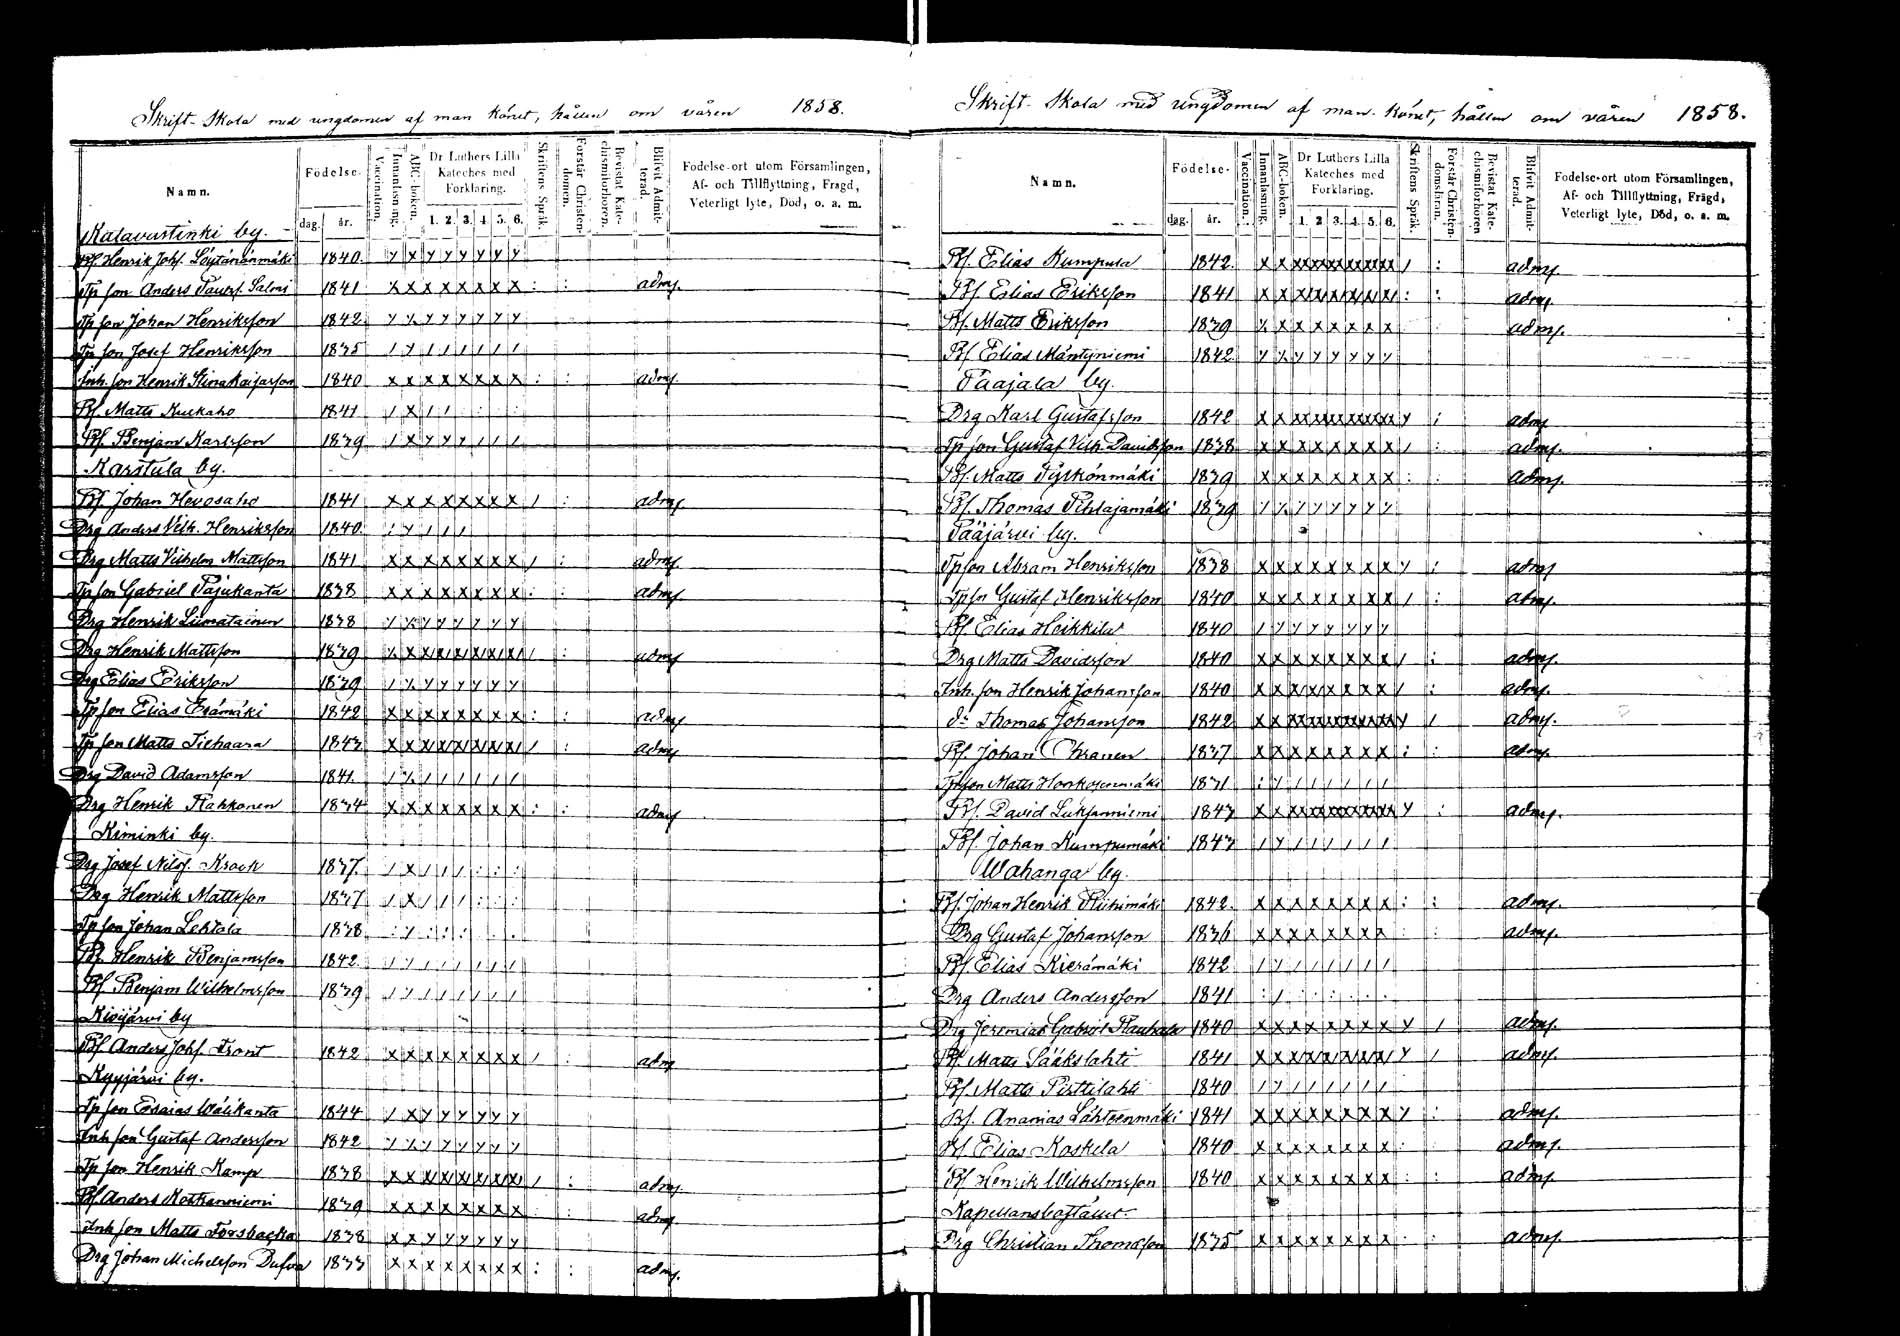 Skrift-Skola med ungdomen af man könet, hållen om våren 1858.
Namn.
Födelse-
dag. år.
Vaccination.
Innanläsning.
ABC-boken.
Dr Luthers Lilla Kateches med Förklaring.
1. 2. 3. 4. 5. 6.
Skriftens Språk.
Förstår Christen-domen.
Bevistat Kate-chismiförhören.
Blifvit Admit-terad.
Födelse-ort utom Församlingen,
Af- och Tillflyttning, Frägd,
Veterligt lyte, Död, o. a. m.
Kalavastinki by.
Bs. Henrik Johs. Löytänänmäki 1840 y x y y y y y y
Tp son Anders Salmi 1841 x x x x x x x x : : adms.
Tp son Johan Henriksson 1842 y y y y y y y y
Tp son Josef Henriksson 1835 / y / / / / / /
Inh. son Henrik Stina Kaisasson 1840 x x x x x x x x : : adms.
Bs. Matts Kuckaho 1841 / x / / : : : :
Bs. Benjam Karlsson 1839 / x y y y / / /
Karstula by.
Bs. Johan Hevosaho 1841 x x x x x x x x / : adms
Drg Anders Vilh. Henriksson 1840 / y / / /
Drg Matts Vilhelm Mattsson 1841 x x x x x x x x / : adms
Tp son Gabriel Pajukanta 1838 x x x x x x x x : : adms
Drg Henrik Liimatainen 1838 y x y y y y y y
Drg Henrik Mattsson 1839 x x x x x x x x / : adms
Drg Elias Eriksson 1839 / x y y y y y y
Tp son Elias Erämäki 1842 x x x x x x x x : : adms
Tp son Matts Tiehaara 1843 x x x x x x x x / : adms
Drg David Adamsson 1841 / x / / / / / /
Drg Henrik Rahkonen 1834 x x x x x x x x : : adms
Kiminki by.
Drg Josef Nilss. Krook 1837 / x / / / : : :
Drg Henrik Mattsson 1837 / x / / / : : :
Tp son Johan Lehtola 1838 : y : : :
Bs. Henrik Benjamsson 1842 / y / / / / / /
Bs. Benjam Wilhelmsson 1839 / y / / / / / /
Kivijärvi by
Bs. Anders Johs. Front 1842 x x x x x x x x / : adms
Kyyjärvi by.
Tp son Esaias Wälikanta 1844 / x y y y y y y
Inh son Gustaf Andersson 1842 y x y y y y y y
Tp son Henrik Kamp 1838 x x x x x x x x / : adms.
Bs Anders Koskanniemi 1839 x x x x x x x x : : adms
Inh son Matts Forsbacka 1838 x x y y y y y y
Drg Johan Michelsson Dufva 1833 x x x x x x x x : : adms.
Skrift-Skola med ungdomen af man-könet, hållen om våren 1858.
Namn.
Födelse-
dag. år.
Vaccination.
Innanläsning.
ABC-boken.
Dr Luthers Lilla Kateches med Förklaring.
1. 2. 3. 4. 5. 6.
Skriftens Språk.
Förstår Christen-domsläran.
Bevistat Kate-chismiförhören
Blifvit Admit-terad.
Födelse-ort utom Församlingen,
Af- och Tillflyttning, Frägd,
Veterligt lyte, Död, o. a. m.
Bs. Elias Kumpula 1842 x x x x x x x x / : adms.
Bs. Eslias Eriksson 1841 x x x x x x x x : : adms.
Bs. Matts Eriksson 1839 x x x x x x x x adms.
Bs Elias Mäntyniemi 1842 y x y y y y y y
Paajala by.
Drg Karl Gustafsson 1842 x x x x x x x x y : adms
Tp son Gustaf Vilh. Davidsson 1838 x x x x x x x x / : adms.
Bs. Matts Pyskönmäki 1839 x x x x x x x x : : adms
Bs. Thomas Pihlajamäki 1839 / x / y y y y y
Pääjärvi by.
Tp son Abram Henriksson 1838 x x x x x x x x y : adms
Tp son Gustaf Henriksson 1840 x x x x x x x x / : adms.
Bs. Elias Heikkilä 1840 / y y y y y y y
Drg Matts Davidsson 1840 x x x x x x x x / : adms.
Inh. son Henrik Johansson 1840 x x x x x x x x / : adms.
do Thomas Johansson 1842 x x x x x x x x y / adms.
Bs. Johan Oranen 1837 x x x x x x x x : : adms.
Tp son Matts 1831 : y / / / / / /
Bs. David Luksanniemi 1843 x x x x x x x x y : adms.
Bs. Johan Kumpumäki 1843 / y / / / / / /
Wahanga by.
Bs. Johan Henrik Riihimäki 1842 x x x x x x x x : : adms.
Drg Gustaf Johansson 1836 x x x x x x x x : : adms.
Bs Elias Kierämäki 1842 / y / / / / / /
Drg Anders Andersson 1841 : / : : : : : :
Drg Jeremias Gabriel Rauhala 1840 x x x x x x x x y / adms.
Bs. Matts Sääkslahti 1841 x x x x x x x x y / adms.
Bs. Matts Pirttilahti 1840 / y / / / / / /
Bs. Ananias Lähteenmäki 1841 x x x x x x x x y : adms.
Bs Elias Koskela 1840 x x x x x x x x : : adms.
Bs Henrik Wilhelmsson 1840 x x x x x x x x : : adms.
Kapellansbostället.
Drg Christian Thomasson 1835 x x x x x x x x : : adms.